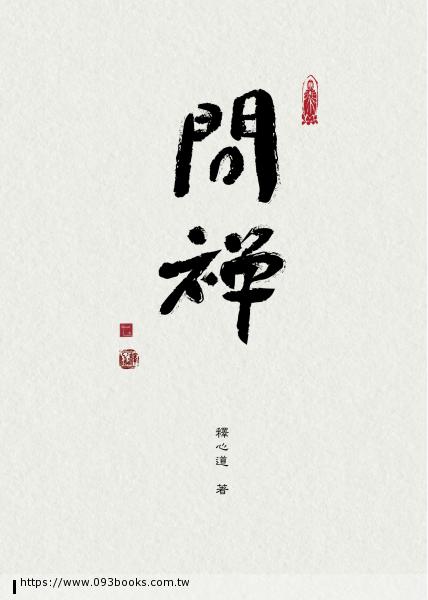 問
禅
釋心道 著
https://www.093books.com.tw